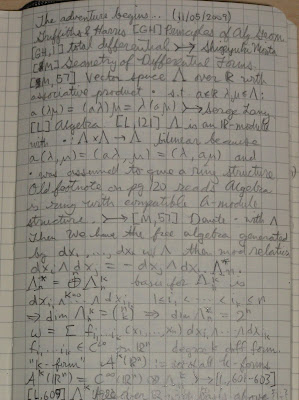 The adventure begins... (11/05/2009)
Griffiths & Harris [GH] Principles of Alg. Geom
[GH,1] total differential >→ Shigeyuki Morita
[M] Geometry of Differential Forms.
[M,57] Vector space Λ over ℝ with
associative product · s.t. a∈ℝ λ,μ∈Λ:
a(λμ) = (aλ)μ = λ(aμ) >→ Serge Lang
[L] Algebra [L,121] Λ is an ℝ-module
with · : Λ×Λ→Λ bilinear because
a(λ,μ) = (aλ, μ) = (λ, aμ) and
· was assumed to give a ring structure
Old footnote on pg 120 reads Algebra
is ring with compatible A-module
structure. >→ [M,57] Denote · with ∧
Then we have the free algebra generated
by dx₁,..., dxₙ w/ ∧ then mod relation
dxᵢ∧dxⱼ = -dxⱼ∧dxᵢ
Λₙ* = ⊕Λₙᵏ basis for Λₙᵏ is
dxᵢ₁∧...∧dxᵢₖ 1≤i₁<...<iₖ≤n
⇒ dim Λₙᵏ = (n k) ⇒ dim Λₙ* = 2ⁿ
ω = Σ fᵢ₁...ᵢₖ(x₁,...,xₙ) dxᵢ₁∧...∧dxᵢₖ
fᵢ₁...ᵢₖ ∈ C^∞ on ℝⁿ degree k diff form
"k-form" Aᵏ(ℝⁿ) := set all k-forms
Aᵏ(ℝⁿ) = C^∞(ℝⁿ)⊗Λₙᵏ >→ [L, 601-603]
[L,605]